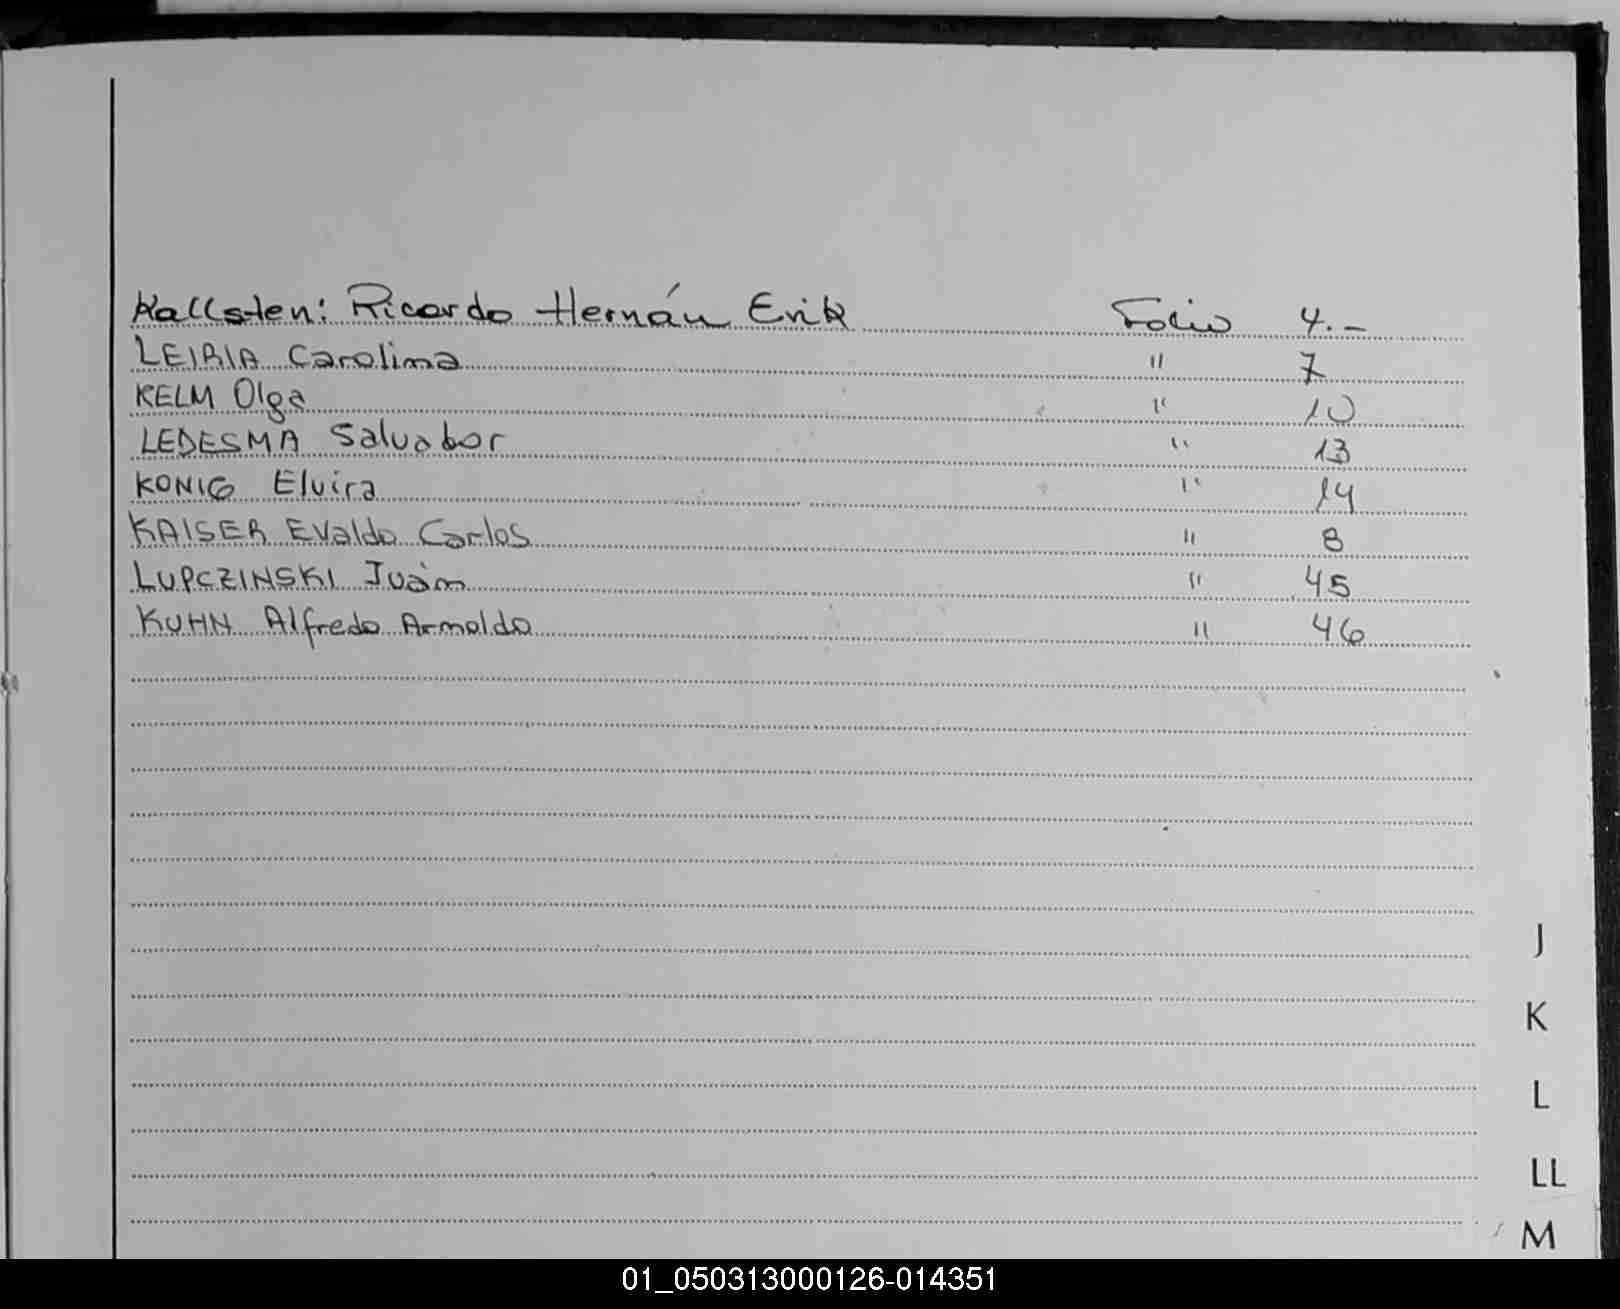 Kallsten: Ricardo Hernán Erik Folio 4.-
LEIRIA Carolina " 7
KELM Olga " 10
LEDESMA Salvador " 13
KONIG Elvira " 14
KAISER Evaldo Carlos " 8
LUPCZINSKI Juán " 45
KUHN Alfredo Arnoldo " 46
J
K
L
LL
M
01_050313000126-014351